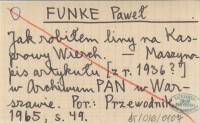 FUNKE Paweł
Jak robiłem liny na Kas-
prowy Wierch. — Maszyno-
pis artykułu [z r. 1936?]
w Archiwum PAN - War-
szawie. Por.: Przewodnik
1965, s. 49.